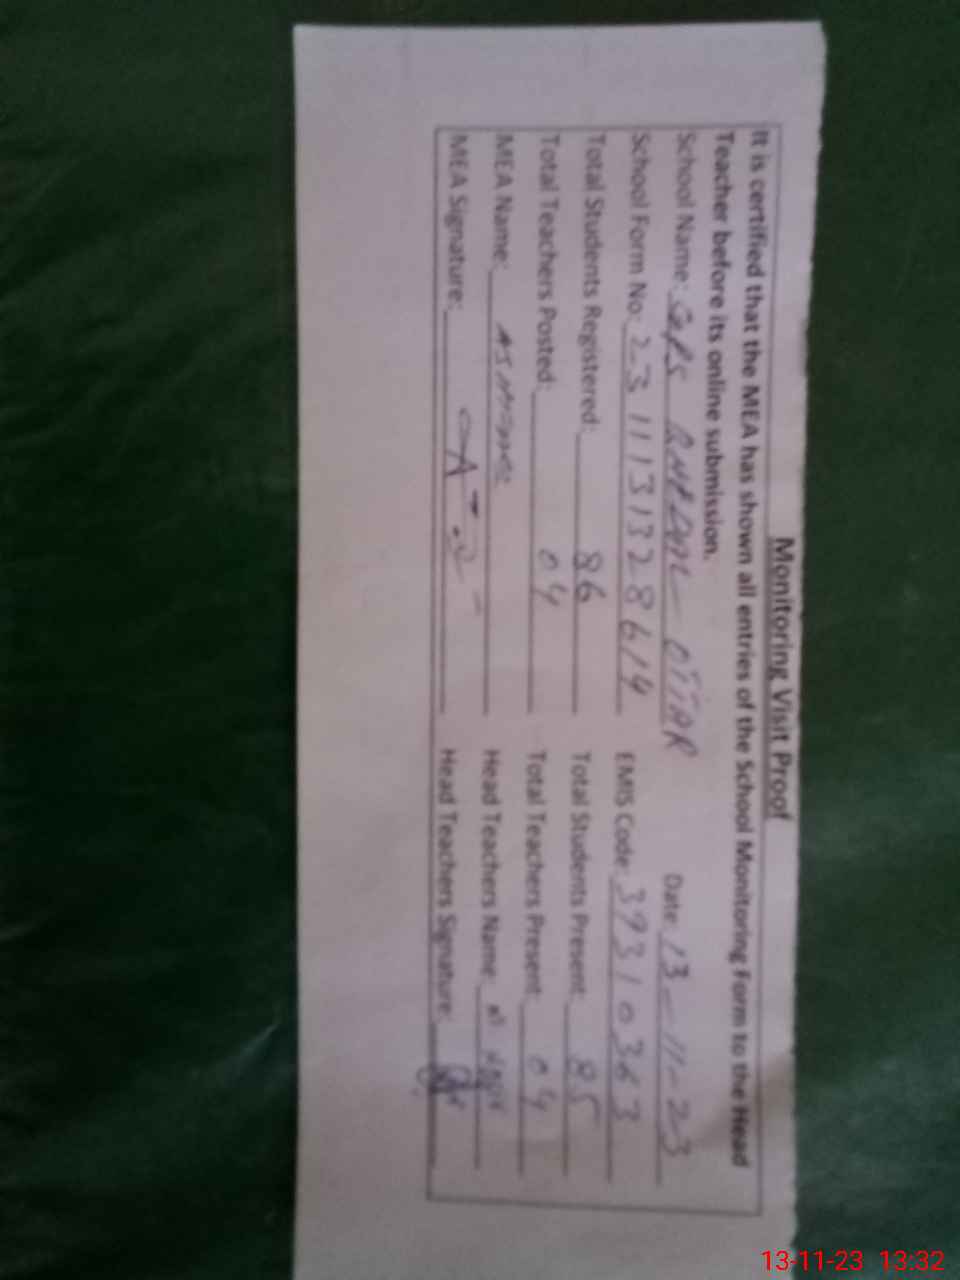 Monitoring Visit Proof
It is certified that the MEA has shown all entries of the School Monitoring Form to the Head
Teacher before its online submission.
School Name: GPS OTTAR Date: 13-11-23
School Form No: 2311131328614 EMIS Code: 39310363
Total Students Registered: 86 Total Students Present: 85
Total Teachers Posted: 04 Total Teachers Present: 04
MEA Name: Head Teachers Name:
MEA Signature: Head Teachers Signature:
13-11-23 13:32